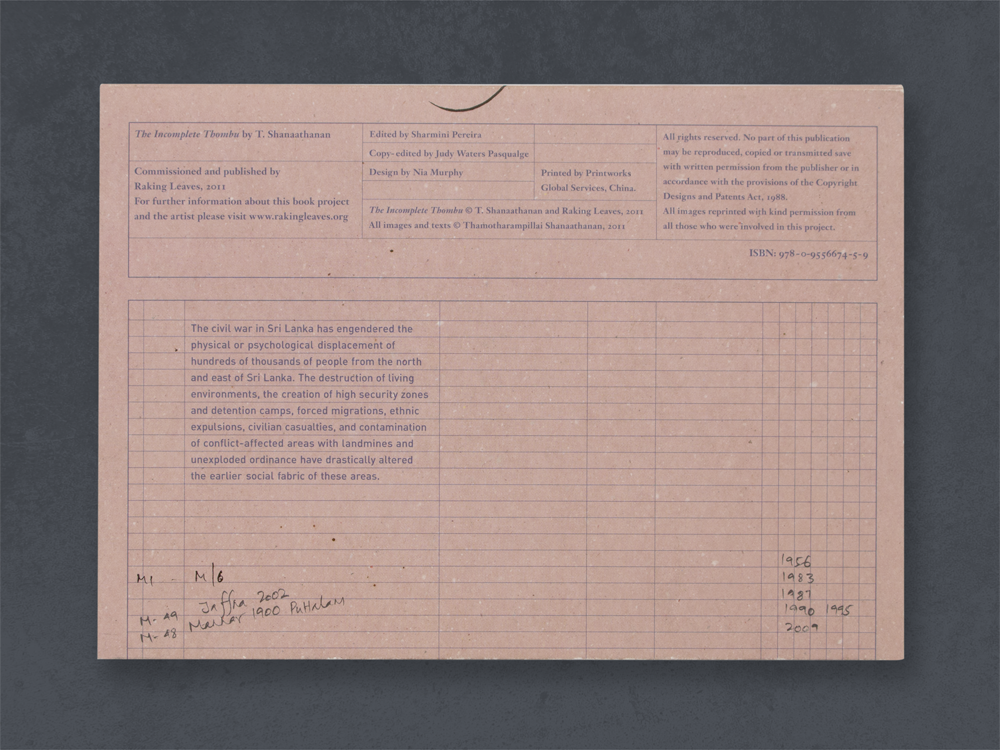 The Incomplete Thombu by T. Shanaathanan
Commissioned and published by
Raking Leaves, 2011
For further information about this book project
and the artist please visit www.rakingleaves.org
Edited by Sharmini Pereira
Copy-edited by Judy Waters Pasqualge
Design by Nia Murphy
Printed by Printworks
Global Services, China.
The Incomplete Thombu © T. Shanaathanan and Raking Leaves, 2011
All images and texts © Thamotharampillai Shanaathanan, 2011
All rights reserved. No part of this publication
may be reproduced, copied or transmitted save
with written permission from the publisher or in
accordance with the provisions of the Copyright
Designs and Patents Act, 1988.
All images reprinted with kind permission from
all those who were involved in this project.
ISBN: 978-0-9556674-5-9
The civil war in Sri Lanka has engendered the
physical or psychological displacement of
hundreds of thousands of people from the north
and east of Sri Lanka. The destruction of living
environments, the creation of high security zones
and detention camps, forced migrations, ethnic
expulsions, civilian casualties, and contamination
of conflict-affected areas with landmines and
unexploded ordinance have drastically altered
the earlier social fabric of these areas.
M1 M/6
M-29 Jaffna 2002
M-28 Mannar 1900 Puttalam
1956
1983
1987
1990 1995
2009